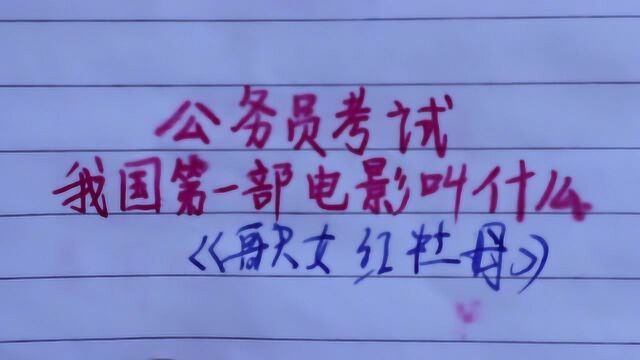 公务员考试
我国第一部电影叫什么
《歌女红牡丹》